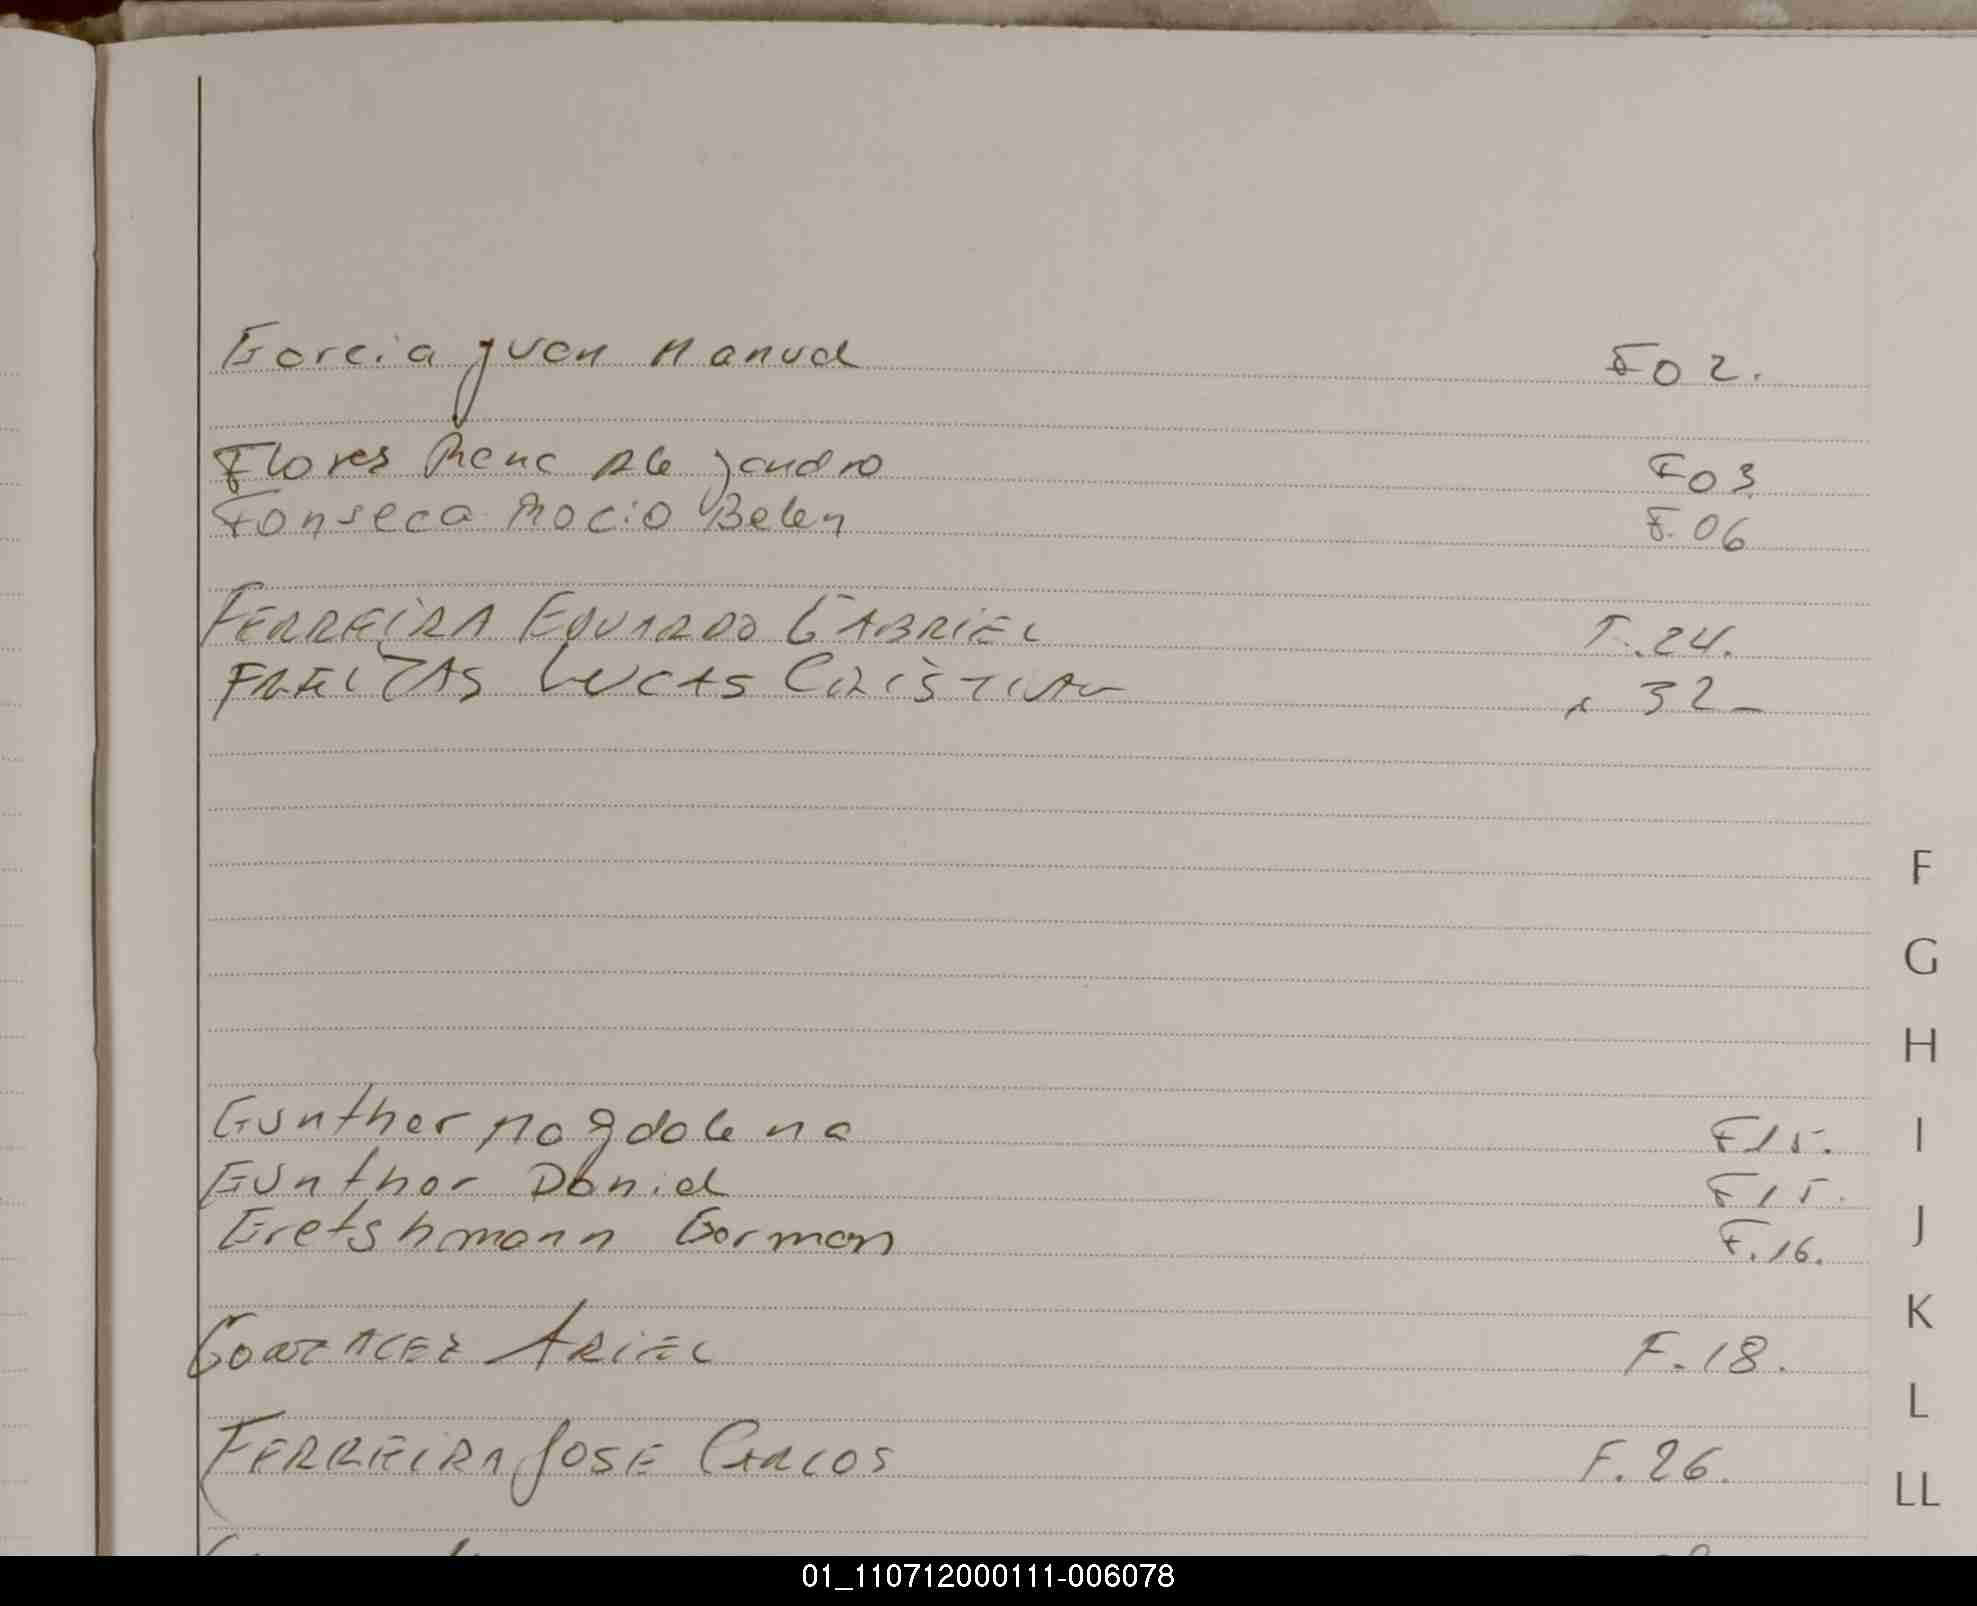 Garcia Juan Manuel F02.
Flores Rene Alejandro F03
Fonseca Rocio Belen F.06
FERREIRA EDUARDO GABRIEL F.24.
FREITAS LUCAS CRISTIAN 32-
F
G
H
Gunther Magdalena F15. I
Gunther Daniel F15.
Gretshmann German F.16. J
K
GONZALEZ ARIEL F.18.
L
FERREIRA JOSE CARLOS F.26.
LL
01_110712000111-006078